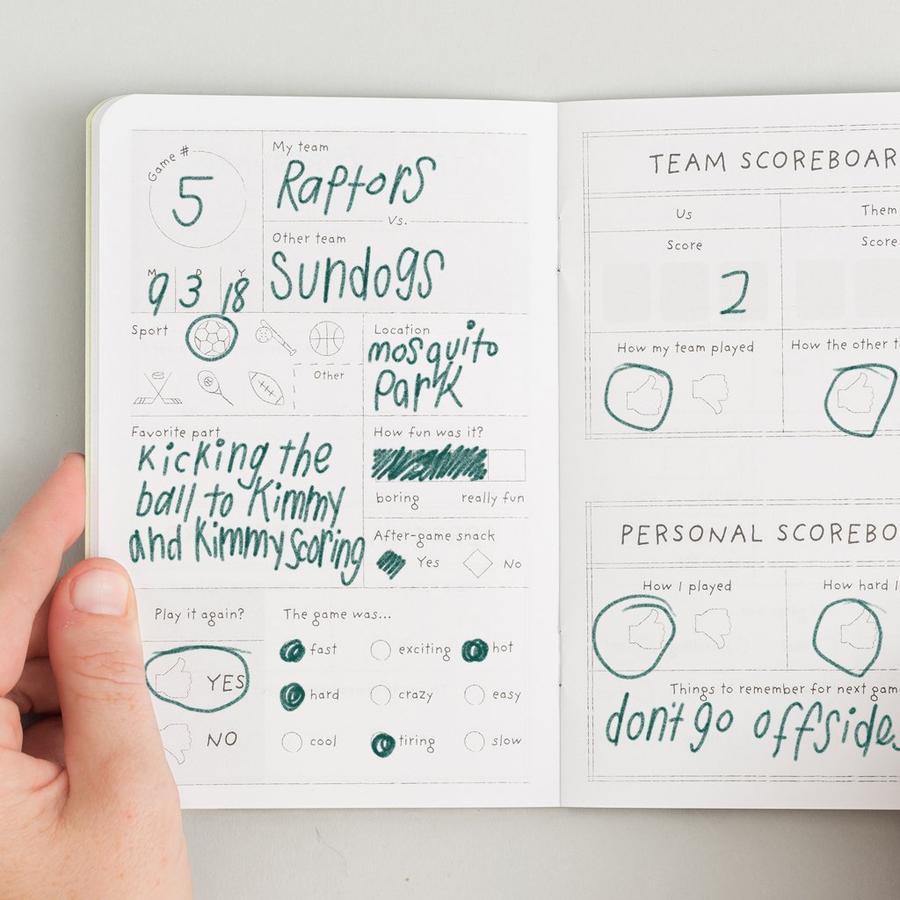 Game #
5
M D Y
9 3 18
My team
Raptors
Vs.
Other team
Sundogs
Sport
Other
Location
mosquito
Park
Favorite part
kicking the
ball to Kimmy
and Kimmy Scoring
How fun was it?
boring really fun
After-game snack
Yes No
Play it again?
YES
NO
The game was...
fast exciting hot
hard crazy easy
cool tiring slow
TEAM SCOREBOAR
Us Them
Score Score
2
How my team played How the other t
PERSONAL SCOREBO
How I played How hard I
Things to remember for next gam
don't go offsides